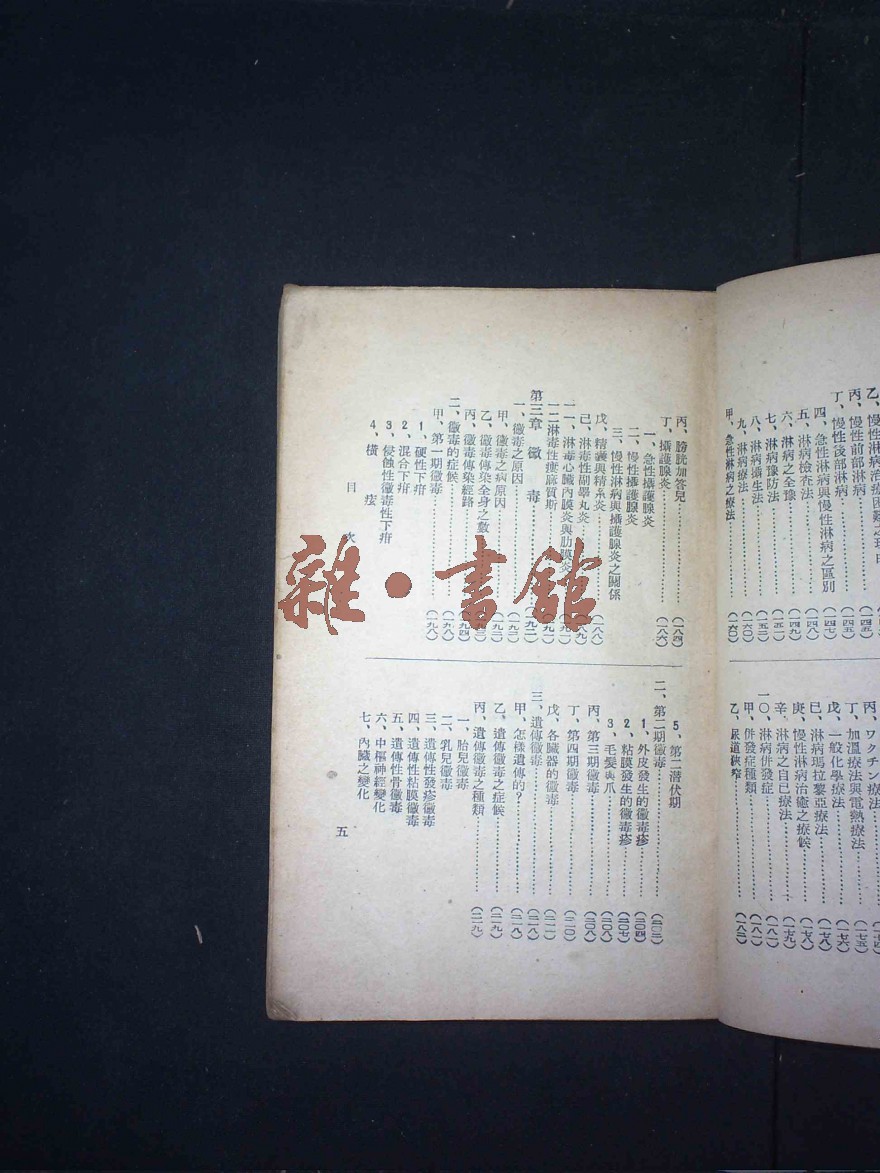 乙、慢性淋病治療困難之理由
丙、慢性前部淋病……(一四五)
丁、慢性後部淋病……(一四五)
四、急性淋病與慢性淋病之區別……(一四七)
五、淋病檢查法……(一四八)
六、淋病之全豫……(一四九)
七、淋病豫防法……(一五一)
八、淋病攝生法……(一五二)
九、淋病療法……(一六〇)
甲、急性淋病之療法……(一六〇)
丙、ワクチン療法……(一七四)
丁、加溫療法與電熱療法……(一七五)
戊、一般化學療法……(一七六)
巳、淋病瑪拉黎亞療法……(一七八)
庚、慢性淋病治癒之療候……(一七八)
辛、淋病之自己療法……(一七九)
一〇、淋病併發症……(一八一)
甲、併發症種類……(一八一)
乙、尿道狹窄……(一八二)
丙、膀胱加答兒……(一八四)
丁、攝護腺炎……(一八六)
一、急性攝護腺炎
二、慢性攝護腺炎
三、慢性淋病與攝護腺炎之關係
戊、精囊與精系炎……(一八八)
己、淋毒性副睾丸炎
一一、淋毒心臟內膜炎與肋膜炎
一二淋毒性僂麻質斯
第三章 黴毒……(一九二)
一、黴毒之原因……(一九二)
甲、黴毒之病原因……(一九二)
乙、黴毒傳染全身之數
丙、黴毒傳染經路……(一九四)
二、黴毒的症候……(一九八)
甲、第一期黴毒……(一九八)
1、硬性下疳
2、混合下疳
3、侵蝕性黴毒性下疳
4、橫痃
目次
5、第二潛伏期
二、第二期黴毒……(二〇三)
1、外皮發生的黴毒疹……(二〇四)
2、粘膜發生的黴毒疹……(二〇七)
3、毛髮與爪……(二〇八)
丙、第三期黴毒……(二〇八)
丁、第四期黴毒……(二一〇)
戊、各臟器的黴毒……(二一一)
三、遺傳黴毒……(二一八)
甲、怎樣遺傳的?……(二一八)
乙、遺傳黴毒之症候……(二一九)
丙、遺傳黴毒之種類……(二一九)
一、胎兒黴毒
二、乳兒黴毒
三、遺傳性發疹黴毒
四、遺傳性粘膜黴毒
五、遺傳性骨黴毒
六、中樞神經變化
七、內臟之變化
五
雜·書館